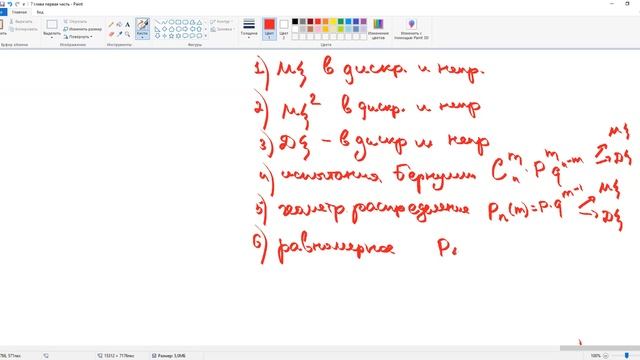 7 глава первая часть - Paint
Главная Вид
Выделить
Обрезать
Изменить размер
Повернуть
Кисти
Толщина
Цвет 1
Цвет 2
Изменение цветов
Изменить с помощью Paint 3D
Буфер обмена
Изображение
Инструменты
Фигуры
Цвета
1) Mξ в дискр. и непр.
2) Mξ² в дискр. и непр
3) Dξ – в дискр и непр
4) испытания Бернулли C_n^m · P^m q^{n-m} → Mξ → Dξ
5) геометр распределение P_n(m) = P·q^{m-1} → Mξ → Dξ
6) равномерное P
15312 × 7176пкс
Размер: 5,0МБ
100%